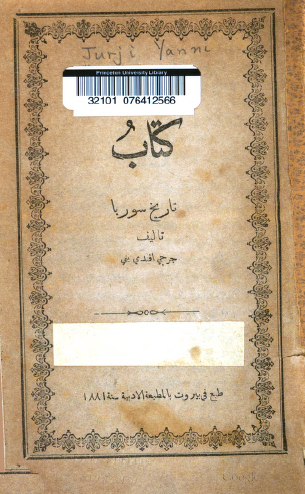 Jurji Yanni
Princeton University Library
32101 076412566
كتابُ
تاريخ سوريا
تأليف
جرجي افندي يني
طبع في بيروت بالمطبعة الادبية سنة ١٨٨١